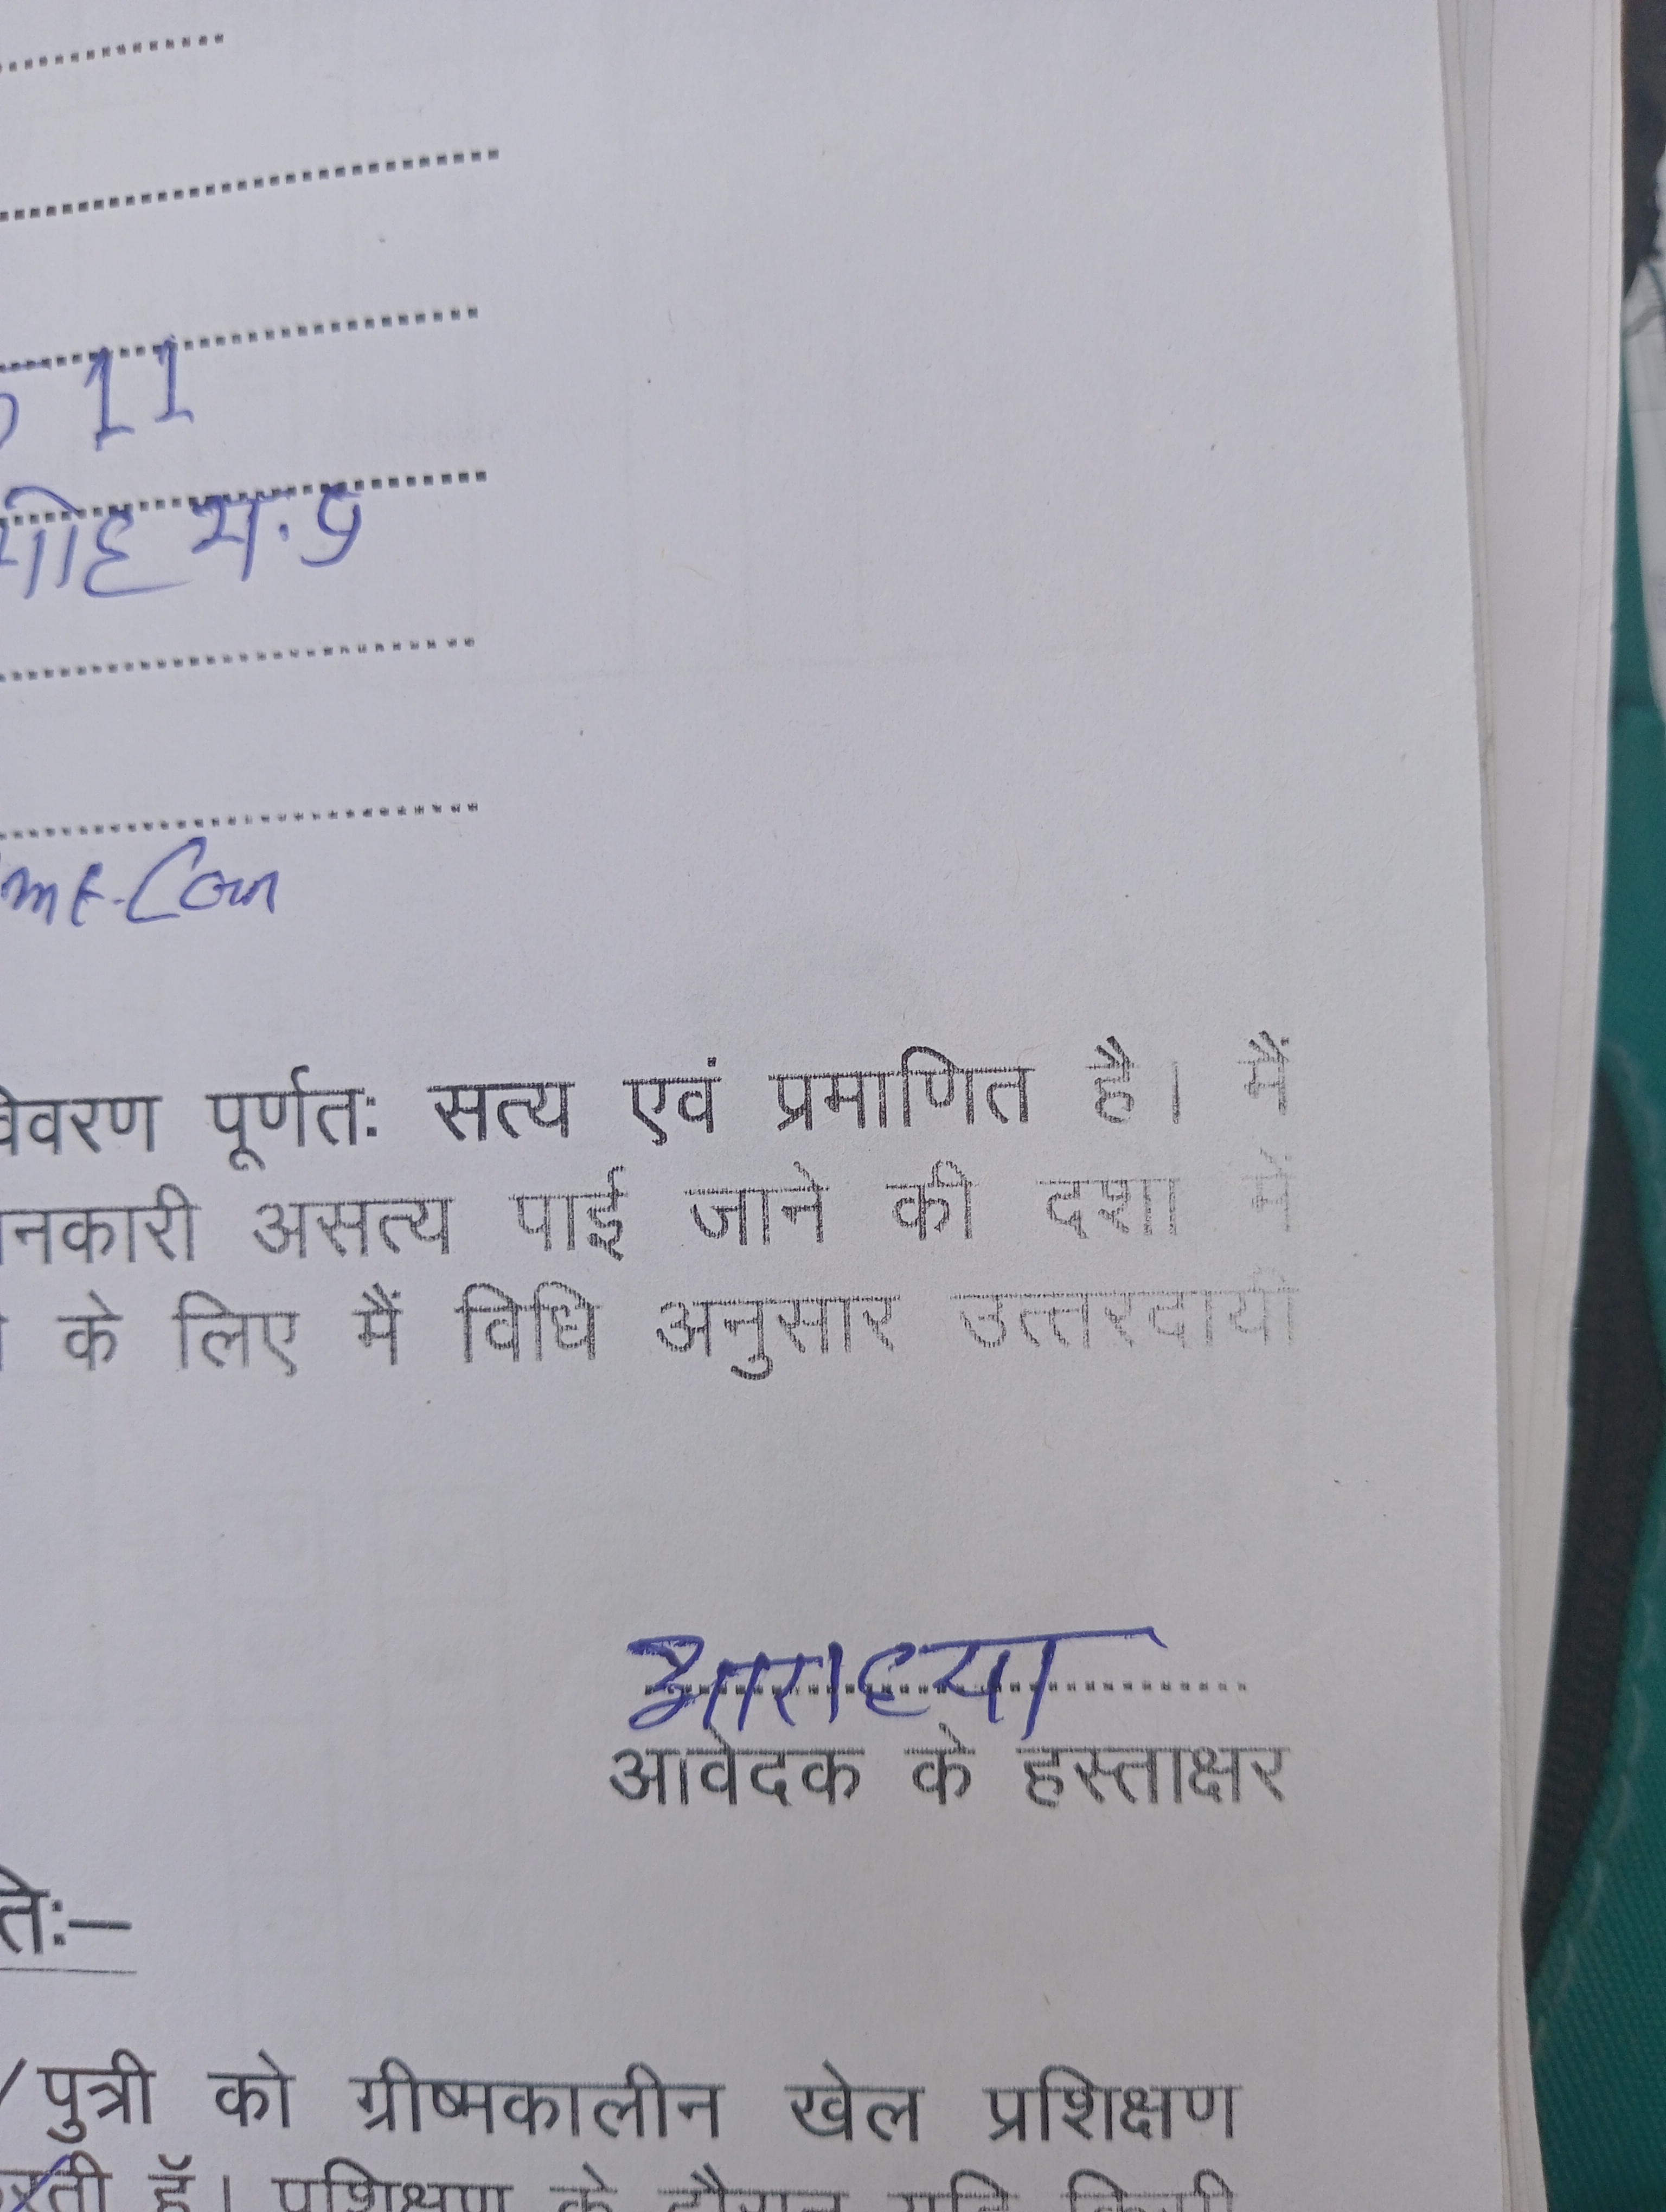 11
म.प्र
विवरण पूर्णतः सत्य एवं प्रमाणित है। मैं
नकारी असत्य पाई जाने की दशा में
के लिए मैं विधि अनुसार उत्तरदायी
आराध्या
आवेदक के हस्ताक्षर
ति:–
/पुत्री को ग्रीष्मकालीन खेल प्रशिक्षण
हूँ। प्रशिक्षण के दौरान यदि किसी